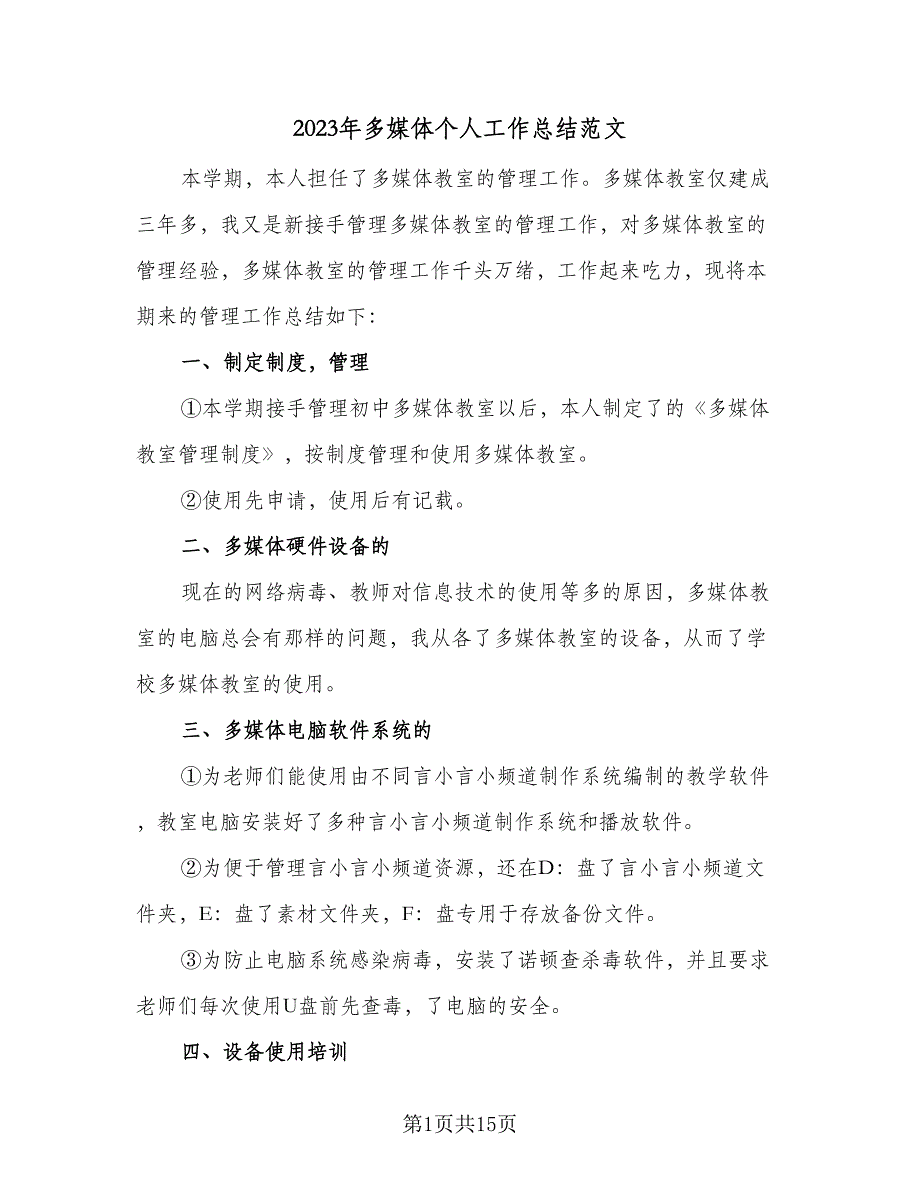 2023年多媒体个人工作总结范文
本学期，本人担任了多媒体教室的管理工作。多媒体教室仅建成
三年多，我又是新接手管理多媒体教室的管理工作，对多媒体教室的
管理经验，多媒体教室的管理工作千头万绪，工作起来吃力，现将本
期来的管理工作总结如下：
一、制定制度，管理
①本学期接手管理初中多媒体教室以后，本人制定了的《多媒体
教室管理制度》，按制度管理和使用多媒体教室。
②使用先申请，使用后有记载。
二、多媒体硬件设备的
现在的网络病毒、教师对信息技术的使用等多的原因，多媒体教
室的电脑总会有那样的问题，我从各了多媒体教室的设备，从而了学
校多媒体教室的使用。
三、多媒体电脑软件系统的
①为老师们能使用由不同言小言小频道制作系统编制的教学软件
，教室电脑安装好了多种言小言小频道制作系统和播放软件。
②为便于管理言小言小频道资源，还在D：盘了言小言小频道文
件夹，E：盘了素材文件夹，F：盘专用于存放备份文件。
③为防止电脑系统感染病毒，安装了诺顿查杀毒软件，并且要求
老师们每次使用U盘前先查毒，了电脑的安全。
四、设备使用培训
第1页共15页